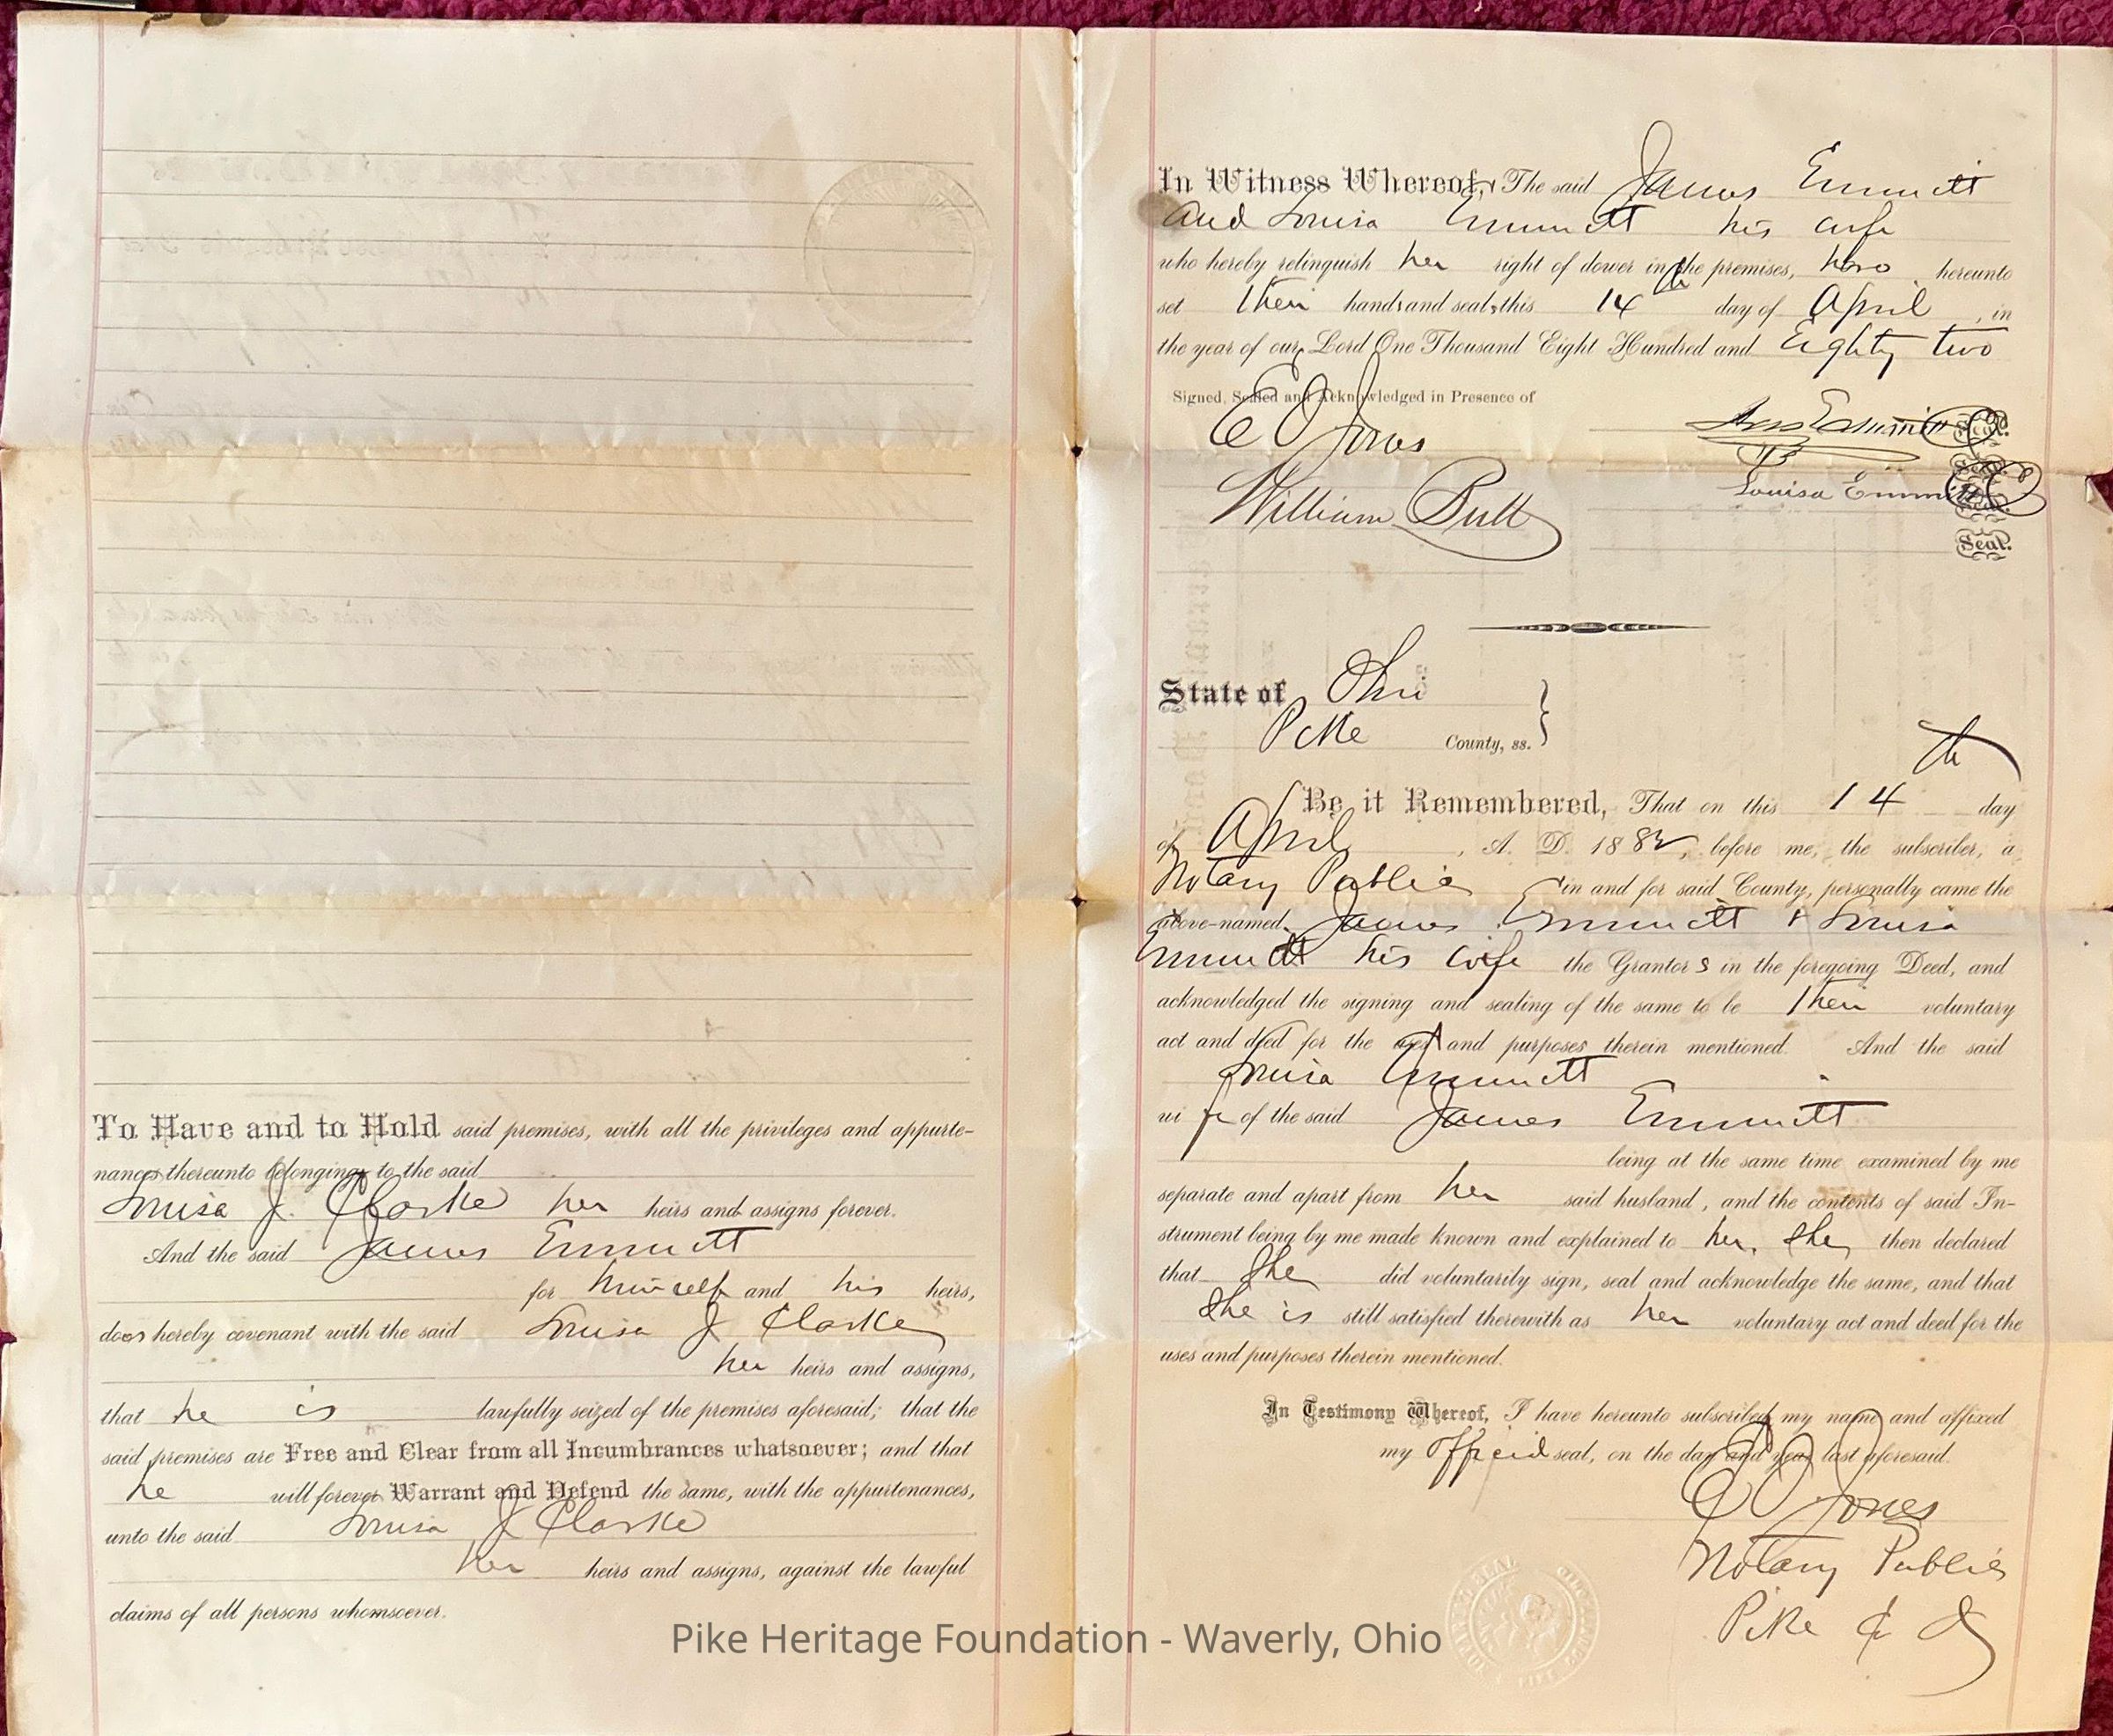 To Have and to Hold said premises, with all the privileges and appurte-
nances thereunto belonging, to the said
Louisa J. Clarke her heirs and assigns forever.
And the said James Emmitt
for himself and his heirs,
does hereby covenant with the said Louisa J Clarke
her heirs and assigns,
that he is lawfully seized of the premises aforesaid; that the
said premises are Free and Clear from all Incumbrances whatsoever; and that
he will forever Warrant and Defend the same, with the appurtenances,
unto the said Louisa J Clarke
her heirs and assigns, against the lawful
claims of all persons whomsoever.
In Witness Whereof, The said James Emmitt
and Louisa Emmitt his wife
who hereby relinquish her right of dower in the premises, have hereunto
set their hands and seals, this 14th day of April, in
the year of our Lord One Thousand Eight Hundred and Eighty two
Signed, Sealed and Acknowledged in Presence of
E O Jones
William Butt
Jas Emmitt Seal.
Seal.
Louisa Emmitt Seal.
Seal.
State of Ohio
Pike County, ss.
Be it Remembered, That on this 14th day
of April, A. D. 1882, before me, the subscriber, a
Notary Public in and for said County, personally came the
above-named James Emmitt & Louisa
Emmitt his wife the Grantors in the foregoing Deed, and
acknowledged the signing and sealing of the same to be their voluntary
act and deed for the uses and purposes therein mentioned. And the said
Louisa Emmitt
wife of the said James Emmitt
being at the same time examined by me
separate and apart from her said husband, and the contents of said In-
strument being by me made known and explained to her, she then declared
that she did voluntarily sign, seal and acknowledge the same, and that
she is still satisfied therewith as her voluntary act and deed for the
uses and purposes therein mentioned.
In Testimony Whereof, I have hereunto subscribed my name and affixed
my official seal, on the day and year last aforesaid.
E O Jones
Notary Public
Pike Co O
Pike Heritage Foundation - Waverly, Ohio